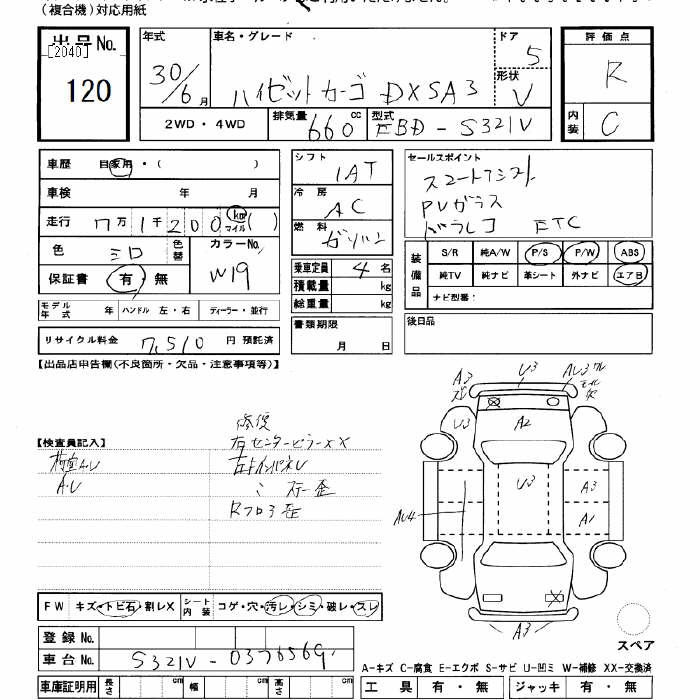 (複合機)対応用紙
出品No.
[2040]
120
年式
30/6月
車名・グレード
ハイゼットカーゴ DXSA3
ドア
5
形状
V
2WD・4WD
排気量
660cc
型式
EBD-S321V
評価点
R
内装
C
車歴 自家用・( )
車検 年 月
走行 7万1千200km マイル( )
色 シロ
色替
カラーNo.
W19
保証書 有・無
モデル年式 年 ハンドル 左・右 ディーラー・並行
リサイクル料金 7,510 円 預託済
シフト
IAT
冷房
AC
燃料
ガソリン
乗車定員 4名
積載量 kg
総重量 kg
書類期限
月 日
セールスポイント
スマートアシスト
PVガラス
ドラレコ ETC
装備品
S/R 純A/W P/S P/W ABS
純TV 純ナビ 革シート 外ナビ エアB
ナビ型番:
後日品
【出品店申告欄(不良箇所・欠品・注意事項等)】
【検査員記入】
修復
右センターピラーXX
A・U
U3
A3
AU3
A2
U3
AU4
A3
A1
A3
FW キズ・トビ石・割レX
シート内装 コゲ・穴・汚レ・シミ・破レ・スレ
登録No.
車台No. S321V-0376569
車庫証明用 長さ cm 幅 cm 高さ cm
スペア
A-キズ C-腐食 E-エクボ S-サビ U-凹ミ W-補修 XX-交換済
工具 有・無 ジャッキ 有・無